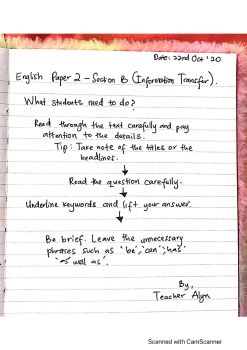 Date: 22nd Oct '20
English Paper 2 - Section B (Information Transfer).
What students need to do?
Read through the text carefully and pay
attention to the details.
Tip: Take note of the titles or the
headlines.
Read the question carefully.
Underline keywords and lift your answer.
Be brief. Leave the unnecessary
phrases such as 'be', 'can', 'has'
'as well as'.
By,
Teacher Alyn
Scanned with CamScanner